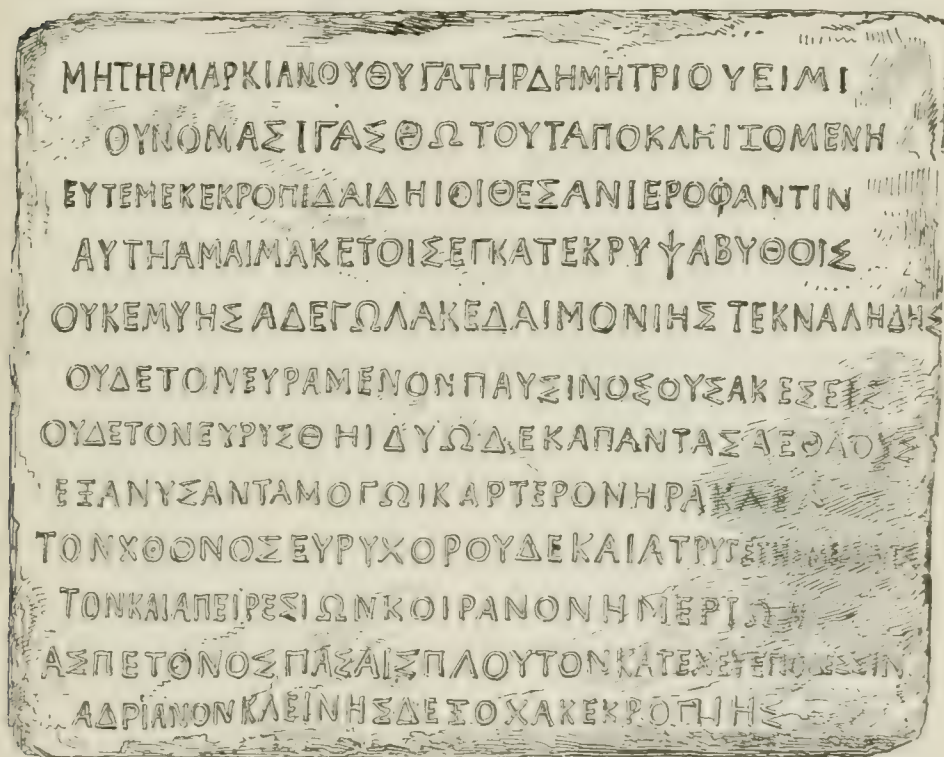 ΜΗΤΗΡΜΑΡΚΙΑΝΟΥΘΥΓΑΤΗΡΔΗΜΗΤΡΙΟΥΕΙΜΙ
ΟΥΝΟΜΑΣΙΓΑΣΘΩΤΟΥΤΑΠΟΚΛΗΙΖΟΜΕΝΗ
ΕΥΤΕΜΕΚΕΚΡΟΠΙΔΑΙΔΗΙΟΙΘΕΣΑΝΙΕΡΟΦΑΝΤΙΝ
ΑΥΤΗΑΜΑΙΜΑΚΕΤΟΙΣΕΓΚΑΤΕΚΡΥΨΑΒΥΘΟΙΣ
ΟΥΚΕΜΥΗΣΑΔΕΓΩΛΑΚΕΔΑΙΜΟΝΙΗΣΤΕΚΝΑΛΗΔΗΣ
ΟΥΔΕΤΟΝΕΥΡΑΜΕΝΟΝΠΑΥΣΙΝΟΣΟΥΣΑΚΕΣΕΙΣ
ΟΥΔΕΤΟΝΕΥΡΥΣΘΗΙΔΥΩΔΕΚΑΠΑΝΤΑΣΑΕΘΛΟΥΣ
ΕΞΑΝΥΣΑΝΤΑΜΟΓΩΙΚΑΡΤΕΡΟΝΗΡΑΚΛΕ
ΤΟΝΧΘΟΝΟΣΕΥΡΥΧΟΡΟΥΔΕΚΑΙΑΤΡΥΓΕΤΗΣΜΕΔΕΟΝΤΑ
ΤΟΝΚΑΙΑΠΕΙΡΕΣΙΩΝΚΟΙΡΑΝΟΝΗΜΕΡΙΩΝ
ΑΣΠΕΤΟΝΟΣΠΑΣΑΙΣΠΛΟΥΤΟΝΚΑΤΕΧΕΥΕΠΟΛΕΣΣΙΝ
ΑΔΡΙΑΝΟΝΚΛΕΙΝΗΣΔΕΞΟΧΑΚΕΚΡΟΠΙΗΣ